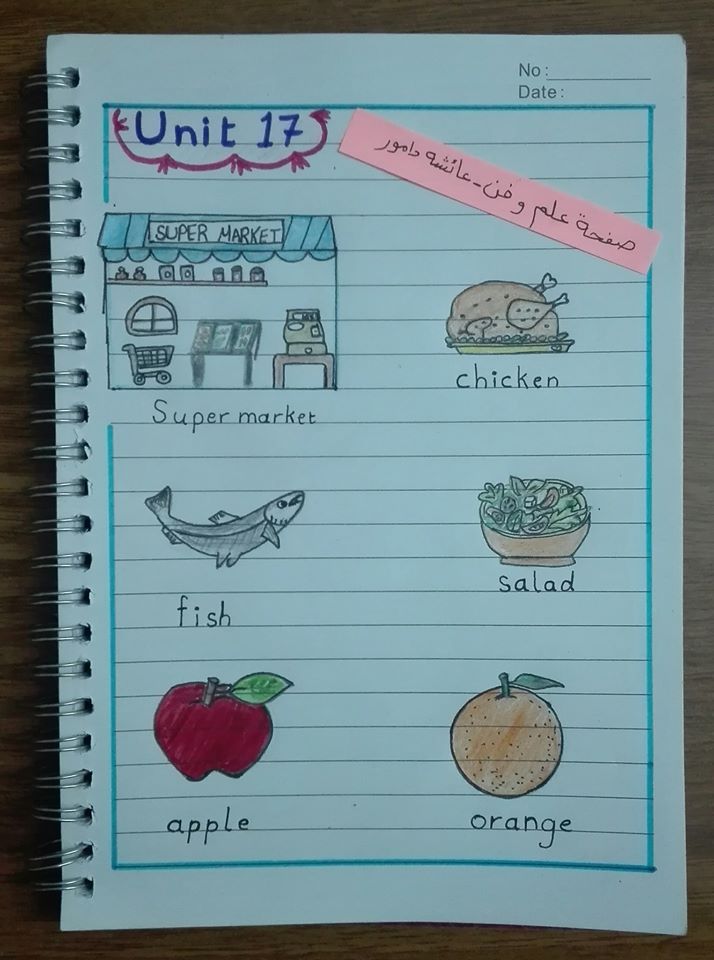 No:
Date:
Unit 17
صفحة علم وفن-عائشه دامور
SUPER MARKET
Super market
chicken
fish
salad
apple
orange